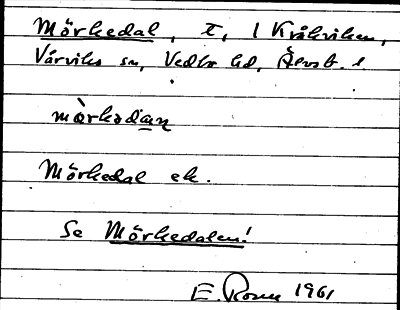 Mörkedal, t, 1 Kråkviken,
Vårviks sn, Vedbo hd, Älvsb. l
mòrkədan
Mörkedal ek.
Se Mörkedalen!
E. Rosén 1961